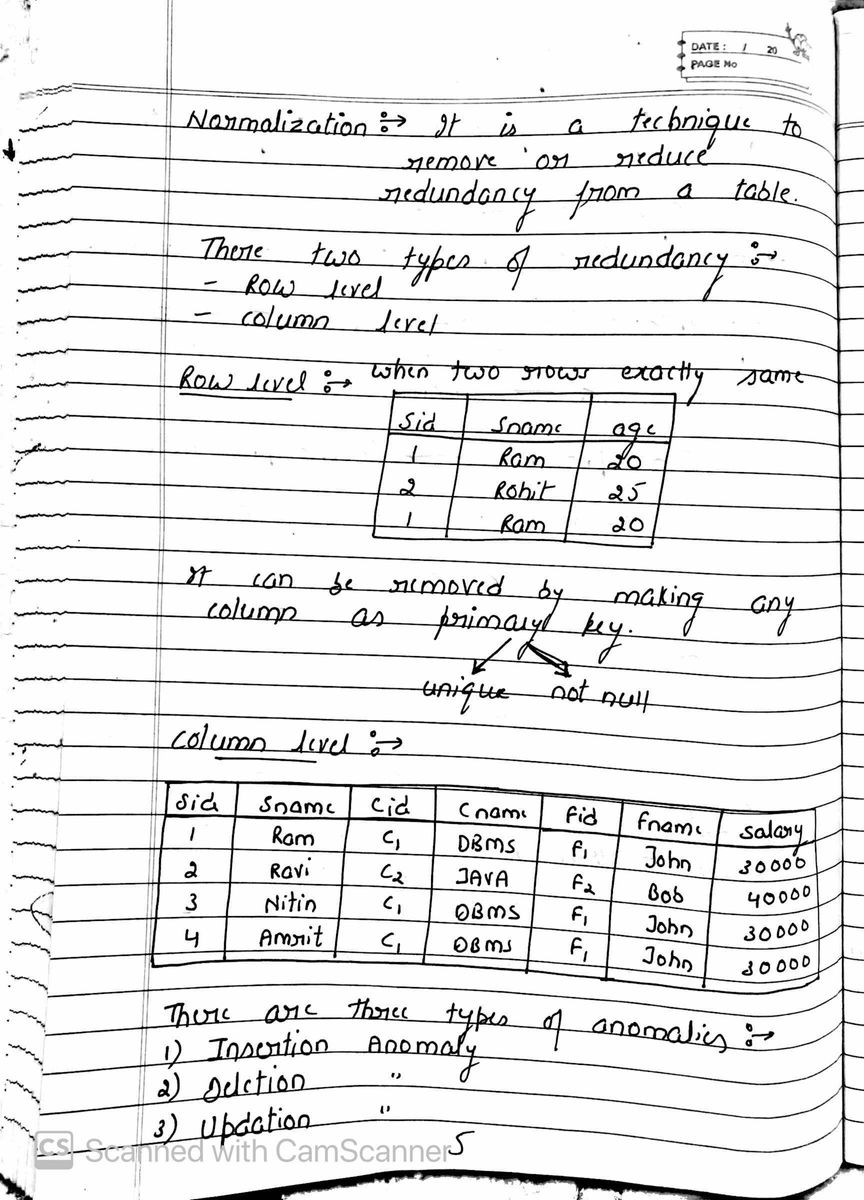 DATE: / 20
PAGE No
Normalization :→ It is a technique to
remove or reduce
redundancy from a table.
There two types of redundancy :→
- Row level
- column level
Row level :→ when two rows exactly same
Sid Sname age
1 Ram 20
2 Rohit 25
1 Ram 20
It can be removed by making any
column as primary key.
unique not null
column level :→
Sid Sname Cid Cname Fid Fname Salary
1 Ram C1 DBMS F1 John 30000
2 Ravi C2 JAVA F2 Bob 40000
3 Nitin C1 DBMS F1 John 30000
4 Amrit C1 DBMS F1 John 30000
There are three types of anomalies :→
1) Insertion Anomaly
2) Deletion "
3) Updation "
5
CS Scanned with CamScanner